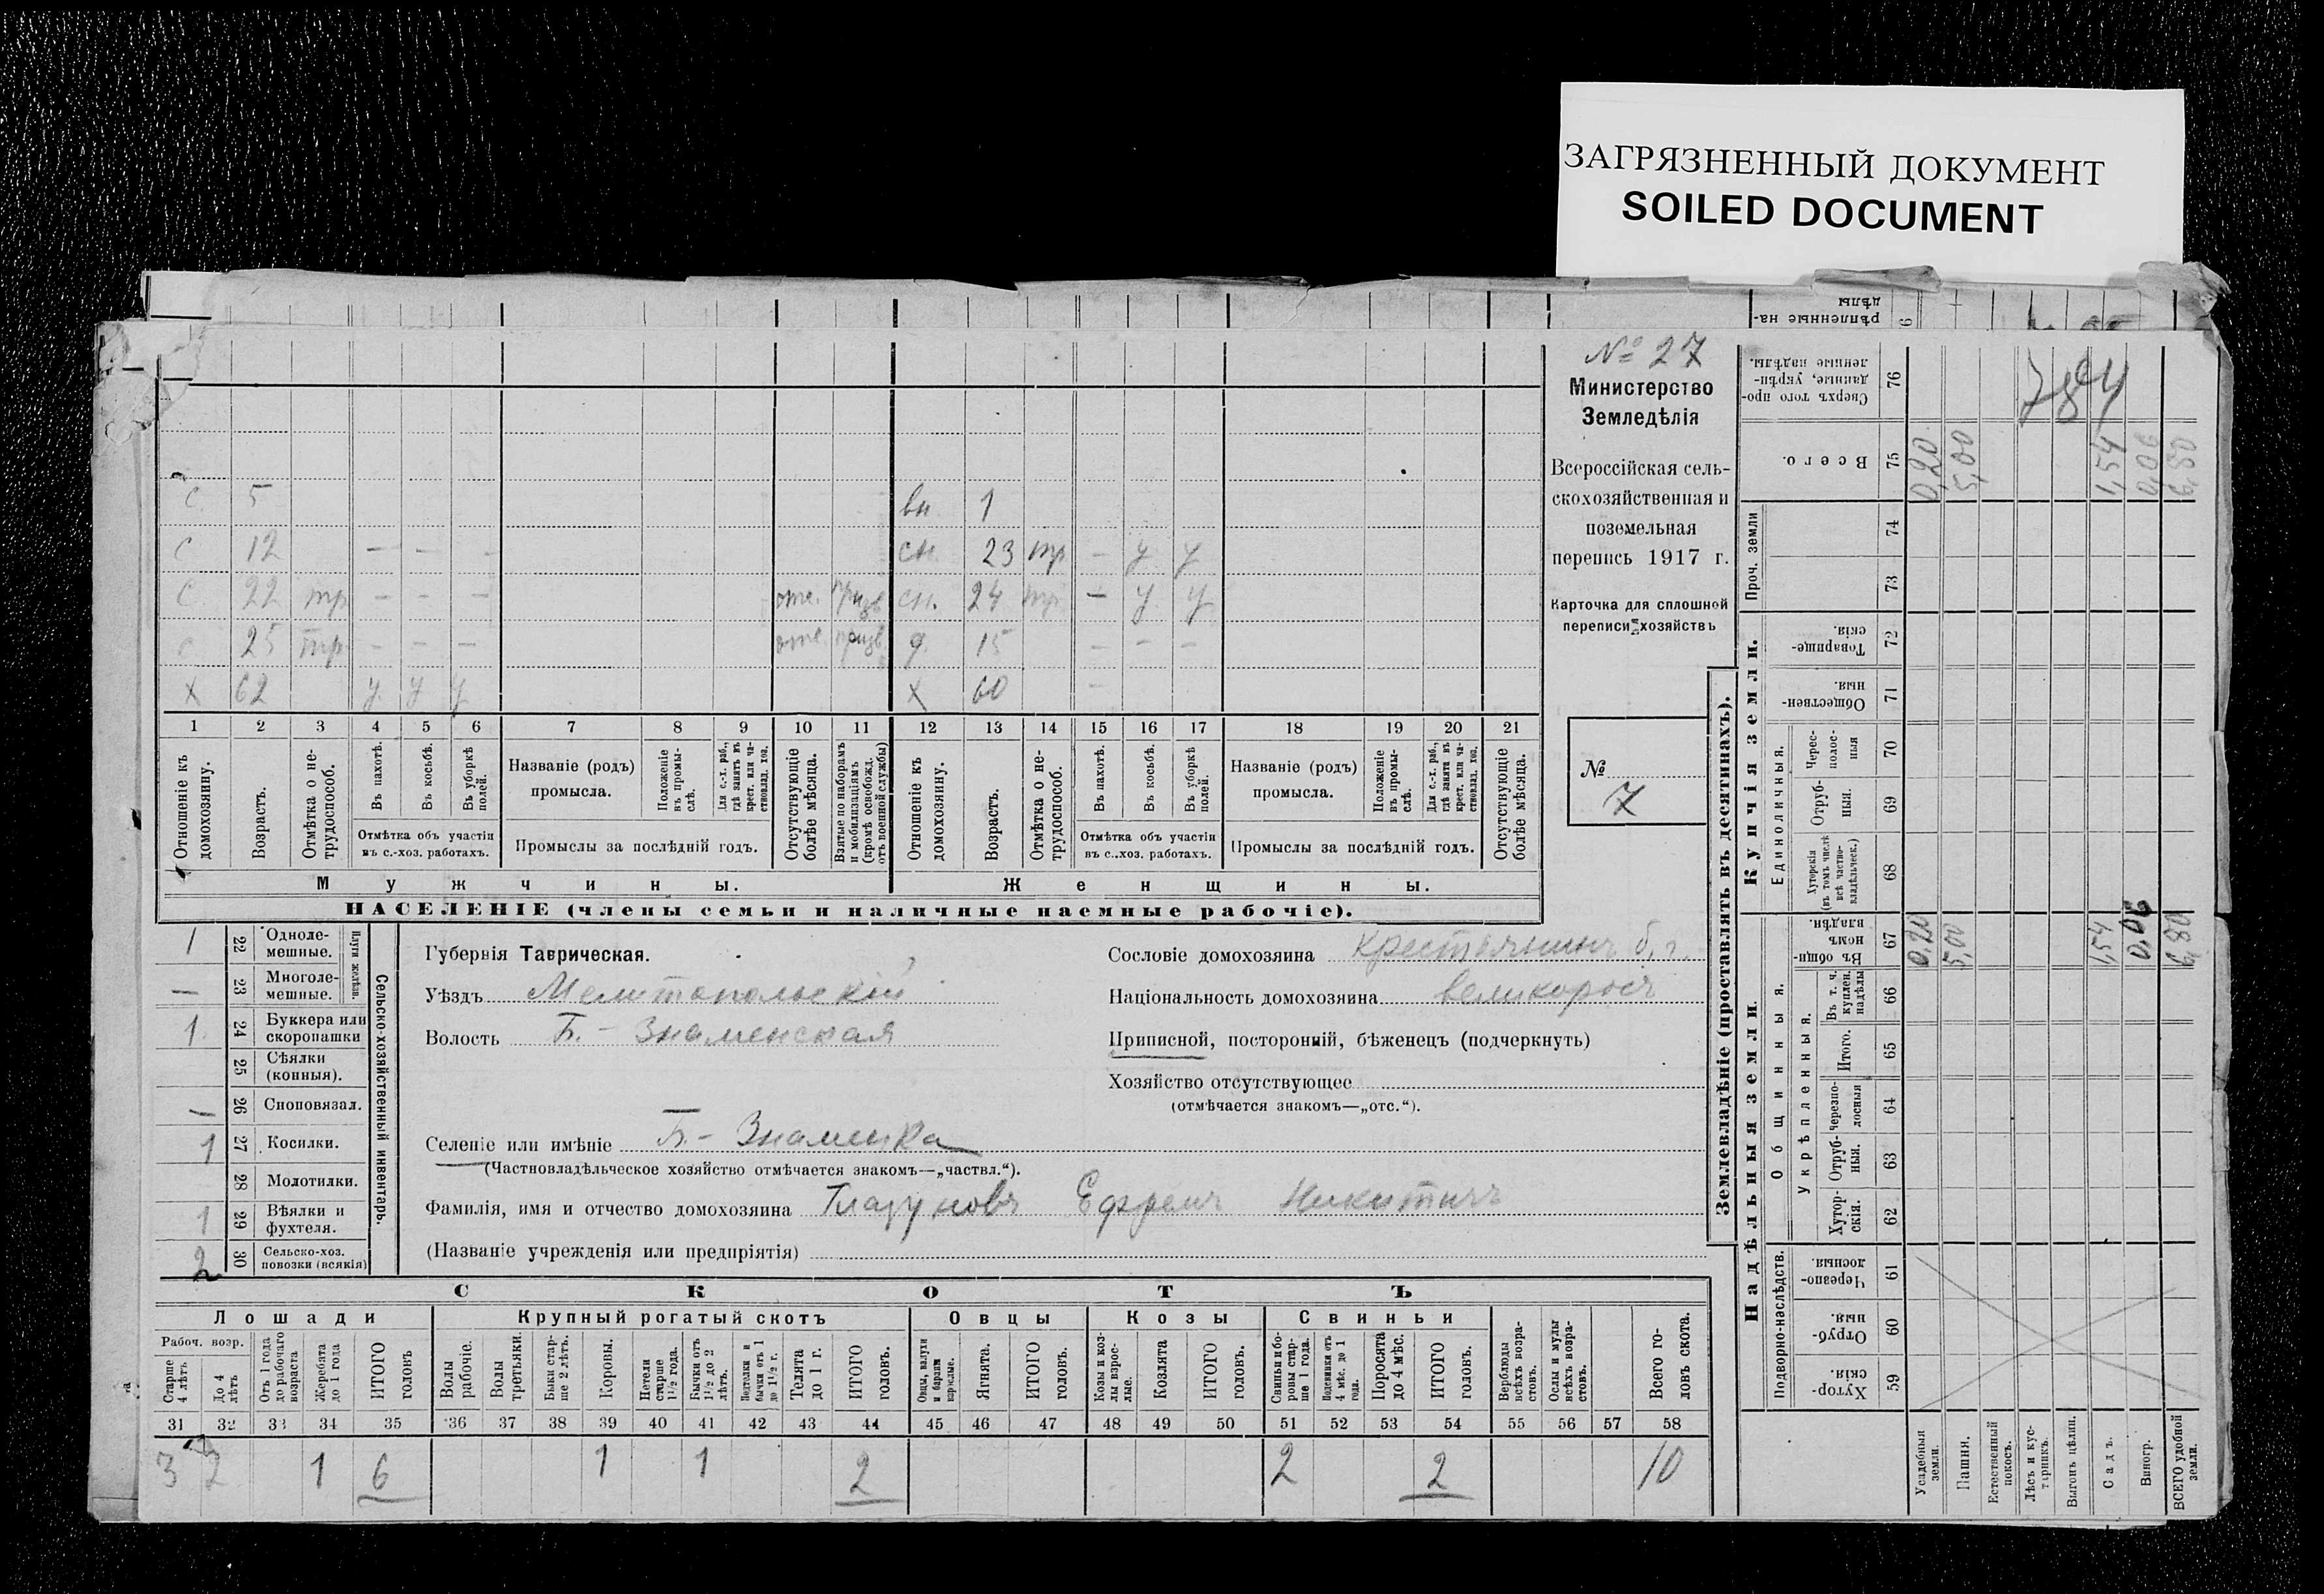 ЗАГРЯЗНЕННЫЙ ДОКУМЕНТ
SOILED DOCUMENT
№ 27
Министерство
Земледѣлія
Всероссійская сель-
скохозяйственная и
поземельная
перепись 1917 г.
Карточка для сплошной
переписи хозяйствъ
№
7
с 5 вн 1
с 12 — — — сн. 23 тр — у у
с 22 тр — — — отс. призв сн. 24 тр — у у
с 25 тр — — — отс. призв. д. 15 — — —
х 62 у у у х 60 —
1 2 3 4 5 6 7 8 9 10 11 12 13 14 15 16 17 18 19 20 21
Отношеніе къ домохозяину.
Возрастъ.
Отмѣтка о не-трудоспособ.
Въ пахотѣ.
Въ косьбѣ.
Въ уборкѣ полей.
Отмѣтка объ участіи въ с.-хоз. работахъ.
Названіе (родъ) промысла.
Положеніе въ промы-слѣ.
Для с.-х. раб., гдѣ занятъ въ крест. или ча-стновлад. хоз.
Промыслы за послѣдній годъ.
Отсутствующіе болѣе мѣсяца.
Взятые по наборамъ и мобилизаціямъ (кромѣ освобожд. отъ военной службы)
Отношеніе къ домохозяину.
Возрастъ.
Отмѣтка о не-трудоспособ.
Въ пахотѣ.
Въ косьбѣ.
Въ уборкѣ полей.
Отмѣтка объ участіи въ с.-хоз. работахъ.
Названіе (родъ) промысла.
Положеніе въ промы-слѣ.
Для с.-х. раб., гдѣ занята въ крест. или ча-стновлад. хоз.
Промыслы за послѣдній годъ.
Отсутствующіе болѣе мѣсяца.
Мужчины. Женщины.
НАСЕЛЕНІЕ (члены семьи и наличные наемные рабочіе).
1 22 Одноле-мешные.
— 23 Многоле-мешные.
Плуги желѣз.
1 24 Буккера или скоропашки
25 Сѣялки (конныя).
— 26 Сноповязал.
1 27 Косилки.
28 Молотилки.
1 29 Вѣялки и фухтеля.
2 30 Сельско-хоз. повозки (всякія)
Сельско-хозяйственный инвентарь.
Губернія Таврическая.
Уѣздъ Мелитопольскій
Волость Б.- Знаменская
Селеніе или имѣніе Б.- Знаменка
(Частновладѣльческое хозяйство отмѣчается знакомъ—„частвл.“).
Фамилія, имя и отчество домохозяина Глазуновъ Ефремъ Никитичъ
(Названіе учрежденія или предпріятія)
Сословіе домохозяина Крестьянинъ б. г.
Національность домохозяина великоросъ
Приписной, посторонній, бѣженецъ (подчеркнуть)
Хозяйство отсутствующее
(отмѣчается знакомъ—„отс.“).
СКОТЪ
Лошади Крупный рогатый скотъ Овцы Козы Свиньи
Рабоч. возр.
Старше 4 лѣтъ
До 4 лѣтъ
Отъ 1 года до рабочаго возраста
Жеребята до 1 года
ИТОГО головъ
Волы рабочіе.
Волы третьяки.
Быки стар-ше 2 лѣтъ.
Коровы.
Нетели старше 1½ года.
Бычки отъ 1½ до 2 лѣтъ.
Нетелки и бычки отъ 1 до 1½ г.
Телята до 1 г.
ИТОГО головъ.
Овцы, валухи и бараны взрослые.
Ягнята.
ИТОГО головъ.
Козы и коз-лы взрос-лые.
Козлята
ИТОГО головъ.
Свиньи и бо-ровы стар-ше 1 года.
Подсвинки отъ 4 мѣс. до 1 года.
Поросята до 4 мѣс.
ИТОГО головъ.
Верблюды всѣхъ возра-стовъ.
Ослы и мулы всѣхъ возра-стовъ.
Всего го-ловъ скота.
31 32 33 34 35 36 37 38 39 40 41 42 43 44 45 46 47 48 49 50 51 52 53 54 55 56 57 58
3 2 1 6 1 1 2 2 2 10
Землевладѣніе (проставлять въ десятинахъ).
Надѣльныя земли. Купчія земли.
Подворно-наслѣдств.
Общинныя.
Укрѣпленныя.
Единоличныя.
Проч. земли
Сверхъ того про-данные, укрѣп-ленные надѣлы. 76
Всего. 75
74
73
Товарище-скія. 72
Обществен-ныя. 71
Черес-полос-ныя 70
Отруб-ныя. 69
Хуторскія (въ томъ числѣ всѣ частно-владѣльческ.) 68
Въ общи-номъ владѣн. 67
Въ т. ч. куплен. надѣлы 66
Итого. 65
Черезпо-лосныя 64
Отруб-ныя. 63
Хутор-скія. 62
Черезпо-лосныя 61
Отруб-ныя. 60
Хутор-скія. 59
Усадебныя земли.
Пашня.
Естественный покосъ.
Лѣсъ и кус-тарникъ.
Выгонъ цѣлин.
Садъ.
Виногр.
ВСЕГО удобной земли.
0,20 5,00 1,54 0,06 6,80
0,20 5,00 1,54 0,06 6,80
784